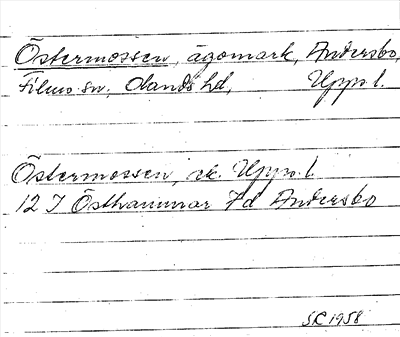 Östermossen, ägomark, Andersbo,
Films sn, Olands hd, Upps. l.
Östermossen, ek. Upps. l.
12 I Östhammar 7d Andersbo
SK 1958